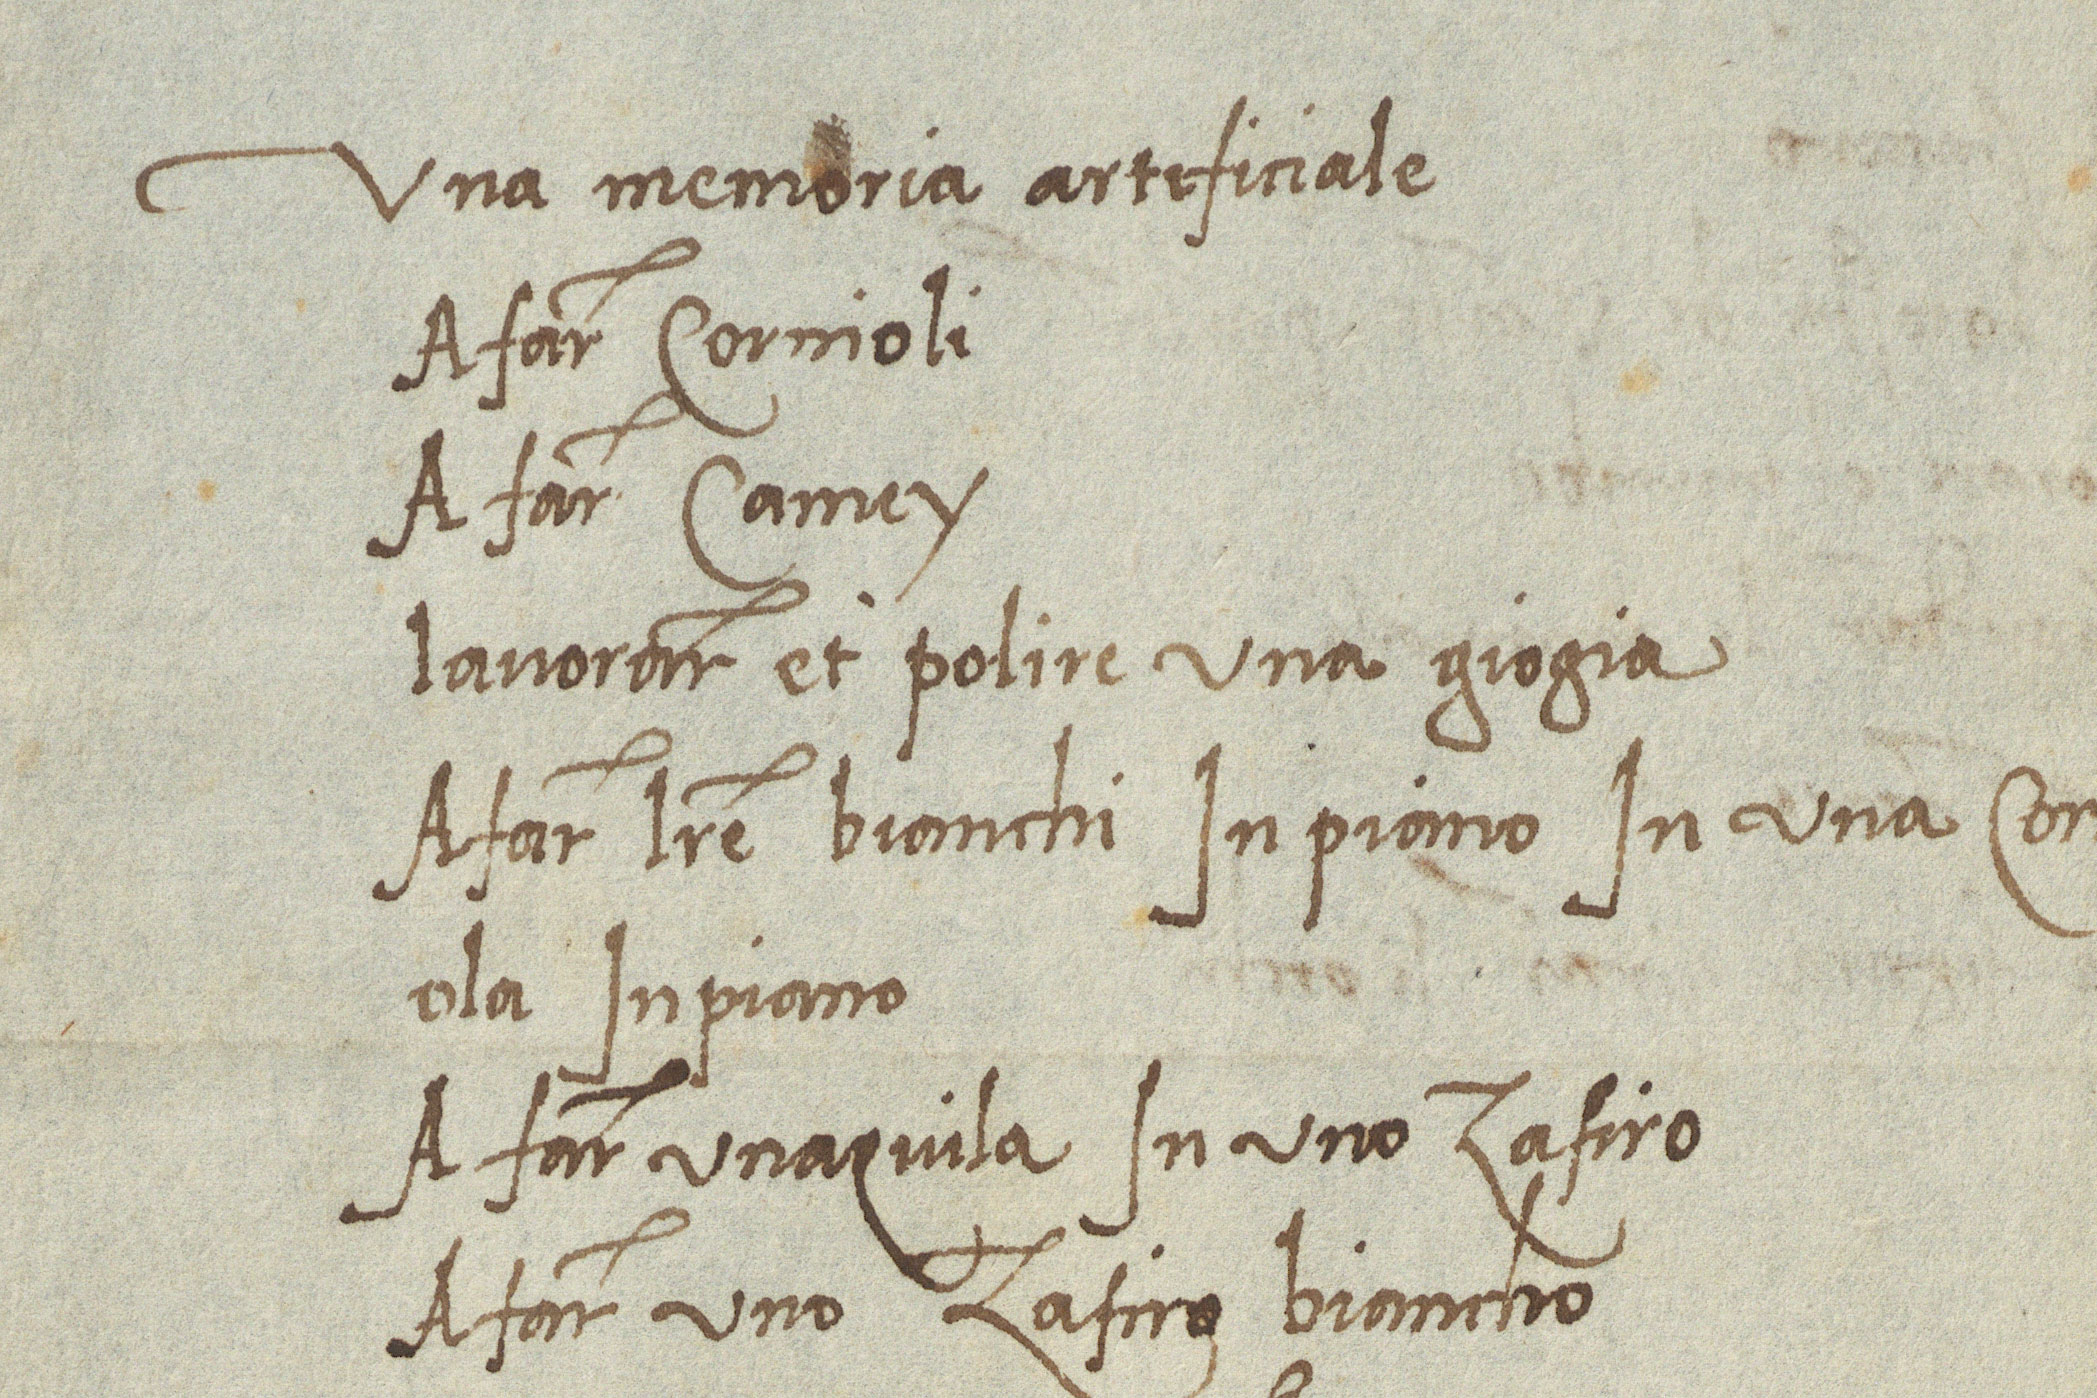 Una memoria arteficiale
A far Cornioli
A far Camey
lauorar et polire una giogia
A far lre bianchi In piano In una Cor
ola In piano
A far unaquila In uno Zafiro
A far uno Zafiro biancho